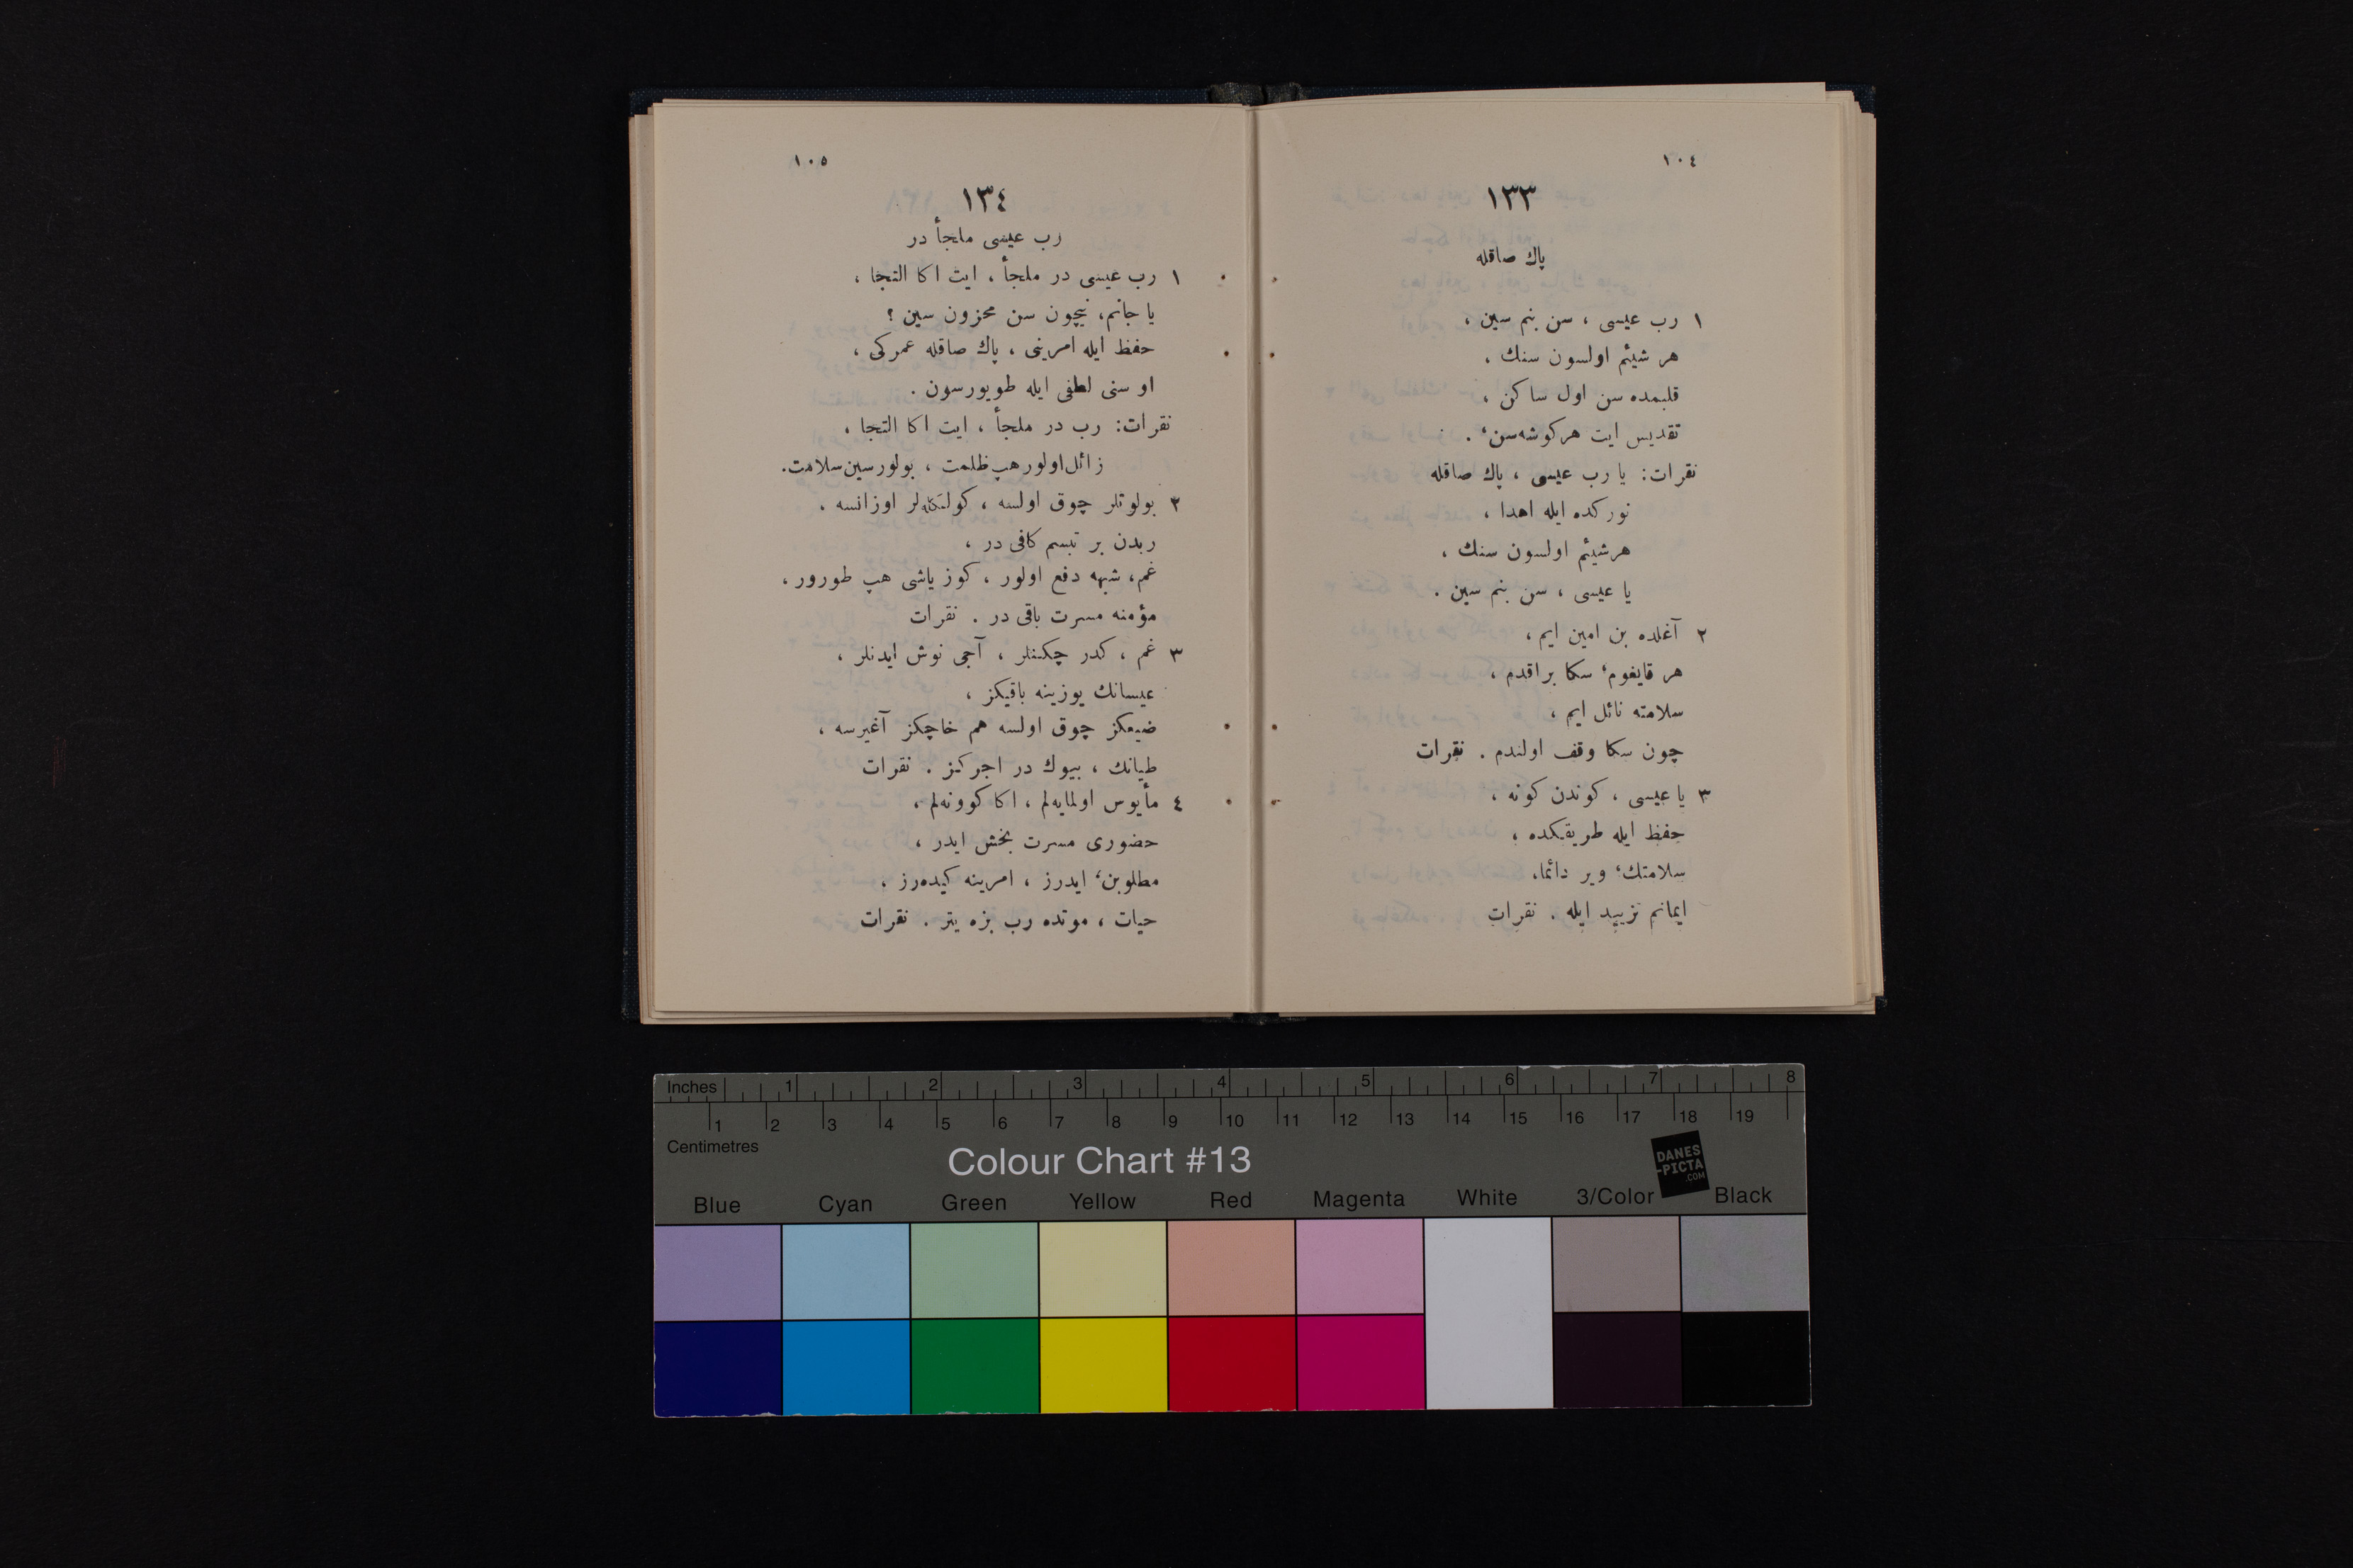 ١٠٤
١٣٣
پاك صاقله
١ رب عيسى ، سن بنم سين ،
هر شيئم اولسون سنك ،
قلبمده سن اول ساكن ،
تقديس ايت هركوشه‌سن‘ .
نقرات: يا رب عيسى ، پاك صاقله
نوركده ايله اهدا ،
هرشيئم اولسون سنك ،
يا عيسى ، سن بنم سين .
٢ آغلده بن امين ايم ،
هر قايغوم‘ سكا براقدم ،
سلامته نائل ايم ،
چون سكا وقف اولندم . نقرات
٣ يا عيسى ، كوندن كونه ،
حفظ ايله طريقكده ،
سلامتك‘ وير دائما،
ايمانم تزييد ايله . نقرات
١٠٥
١٣٤
رب عيسى ملجأ در
١ رب عيسى در ملجأ ، ايت اكا التجا ،
يا جانم، نيچون سن محزون سين ؟
حفظ ايله امرينى ، پاك صاقله عمركى ،
او سنى لطفى ايله طويورسون .
نقرات: رب در ملجأ ، ايت اكا التجا ،
زائل اولور هپ ظلمت ، بولورسين سلامت.
٢ بولوتلر چوق اولسه ، كولكه‌لر اوزانسه .
ربدن بر تبسم كافى در ،
غم، شبهه دفع اولور ، كوز ياشى هپ طورور ،
مؤمنه مسرت باقى در . نقرات
٣ غم ، كدر چكنلر ، آجى نوش ايدنلر ،
عيسانك يوزينه باقيكز ،
ضيعكز چوق اولسه هم خاچكز آغيرسه ،
طيانك ، بيوك در اجركيز . نقرات
٤ مأيوس اولمايه‌لم ، اكا كوونه‌لم ،
حضورى مسرت بخش ايدر ،
مطلوبن‘ ايدرز ، امرينه كيده‌رز ،
حيات ، موتده رب بزه يتر . نقرات
Inches 1 2 3 4 5 6 7 8
1 2 3 4 5 6 7 8 9 10 11 12 13 14 15 16 17 18 19
Centimetres
Colour Chart #13
DANES
-PICTA
.COM
Blue Cyan Green Yellow Red Magenta White 3/Color Black